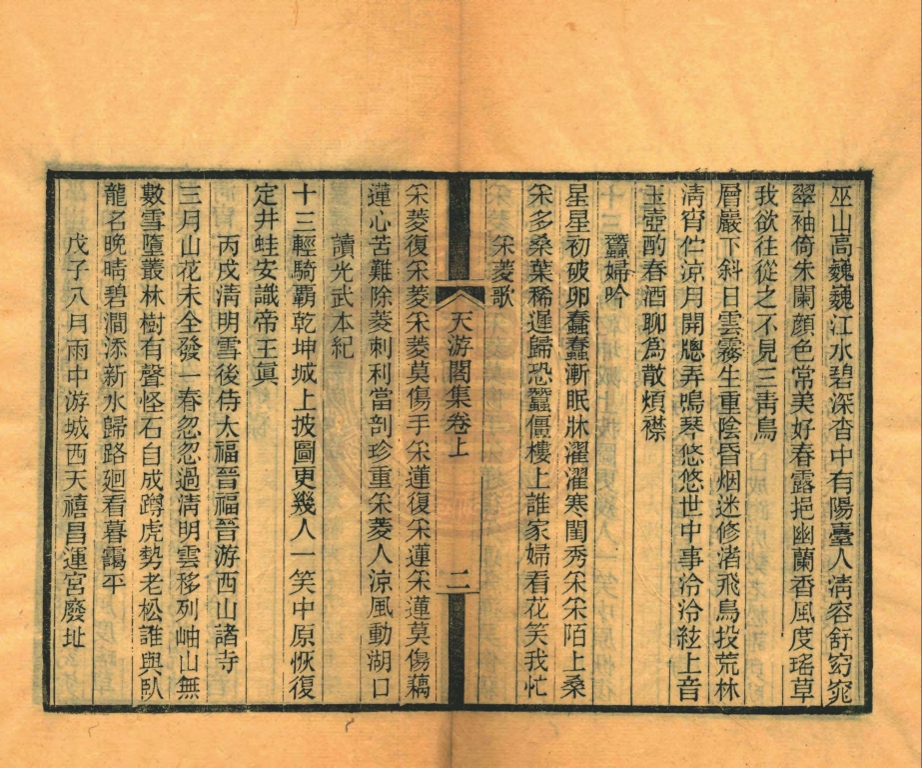 巫山高巍巍江水碧深杳中有陽臺人清容舒窈窕
翠袖倚朱闌顏色常美好春露挹幽蘭香風度瑤草
我欲往從之不見三青鳥
層巖下斜日雲霧生重陰昏烟迷修渚飛鳥投荒林
清宵伫涼月開牕弄鳴琴悠悠世中事泠泠絃上音
玉壺酌春酒聊爲散煩襟
蠶婦吟
星星初破卵蠢蠢漸眠牀濯濯寒閨秀采采陌上桑
采多桑葉稀遲歸恐蠶僵樓上誰家婦看花笑我忙
采菱歌
天游閣集卷上
二
采菱復采菱采菱莫傷手采蓮復采蓮采蓮莫傷藕
蓮心苦難除菱刺利當剖珍重采菱人涼風動湖口
讀光武本紀
十三輕騎霸乾坤城上披圖更幾人一笑中原恢復
定井蛙安識帝王眞
丙戌清明雪後侍太福晉福晉游西山諸寺
三月山花未全發一春忽忽過清明雲移列岫山無
數雪墮叢林樹有聲怪石自成蹲虎勢老松誰與臥
龍名晚晴碧澗添新水歸路迴看暮靄平
戊子八月雨中游城西天禧昌運宮廢址